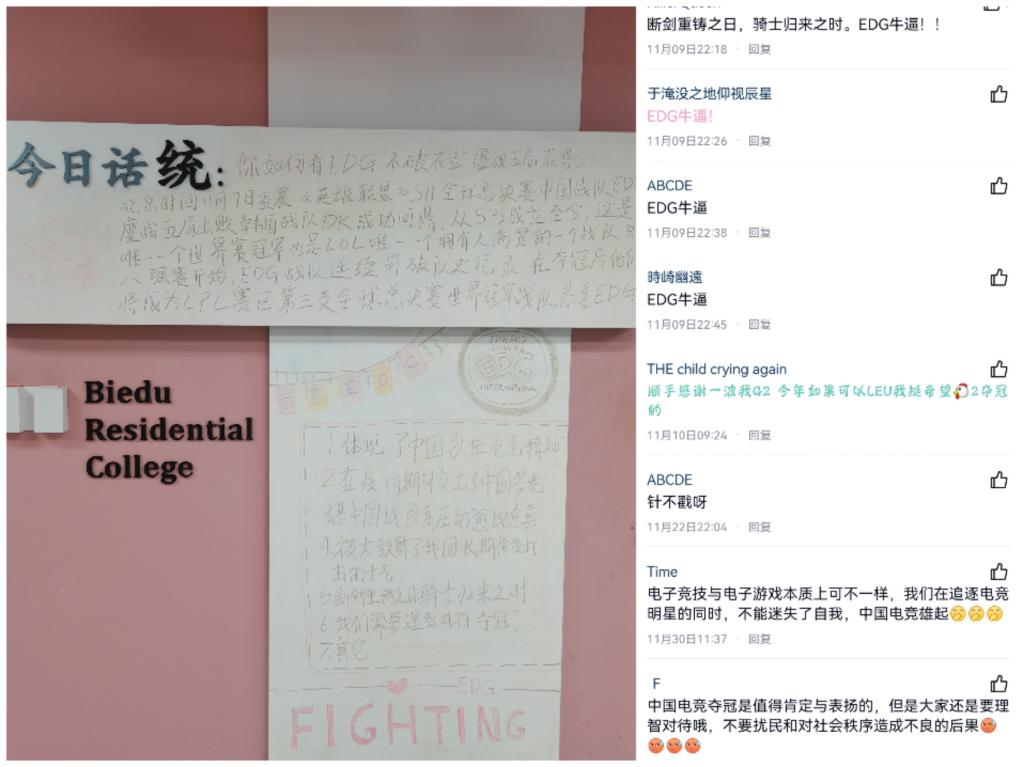 今日话统:
你如何看EDG"不破不立"鏖战五局获胜
北京时间11月7日凌晨《英雄联盟》S11全球总决赛中国战队ED
鏖战五局击败韩国战队DK成功问鼎,从S3成立至今,这是
唯一一个世界赛冠军也是LOL唯一一个拥有大满贯的一个战队
八强赛开始,EDG战队连续打破队史记录 在夺冠后他们
将成为LPL赛区第三支全球总决赛世界冠军战队恭喜EDG
EDWARD
GAMING
EDG
INTERNATIONAL
E D G
Biedu
Residential
College
1.体现了中国队伍电竞精神
2.在疫情期间交出了中国答卷
3.是中国战队
4.极大鼓舞了我国长期
击的士气
5.断剑重铸之日骑士归来之时
6.我们需要 夺冠
7.其它
EDG
FIGHTING
断剑重铸之日,骑士归来之时。EDG牛逼!!
11月09日22:18 · 回复
于淹没之地仰视辰星
EDG牛逼!
11月09日22:26 · 回复
ABCDE
EDG牛逼
11月09日22:38 · 回复
時崎幽遠
EDG牛逼
11月09日22:45 · 回复
THE child crying again
顺手感谢一波我G2 今年如果可以LEU我挺希望🐔2夺冠
的
11月10日09:24 · 回复
ABCDE
针不戳呀
11月22日22:04 · 回复
Time
电子竞技与电子游戏本质上可不一样,我们在追逐电竞
明星的同时,不能迷失了自我,中国电竞雄起🤭🤭🤭
11月30日11:37 · 回复
F
中国电竞夺冠是值得肯定与表扬的,但是大家还是要理
智对待哦,不要扰民和对社会秩序造成不良的后果😡
😡😡😡